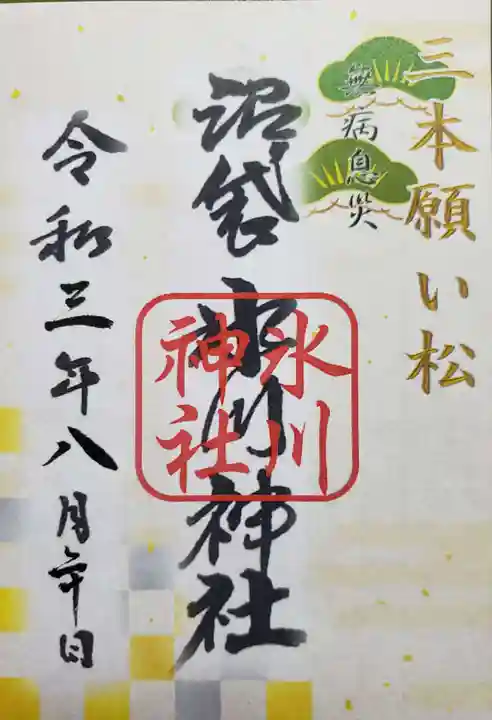 三本願い松
無病息災
沼袋氷川神社
氷川
神社
令和三年八月